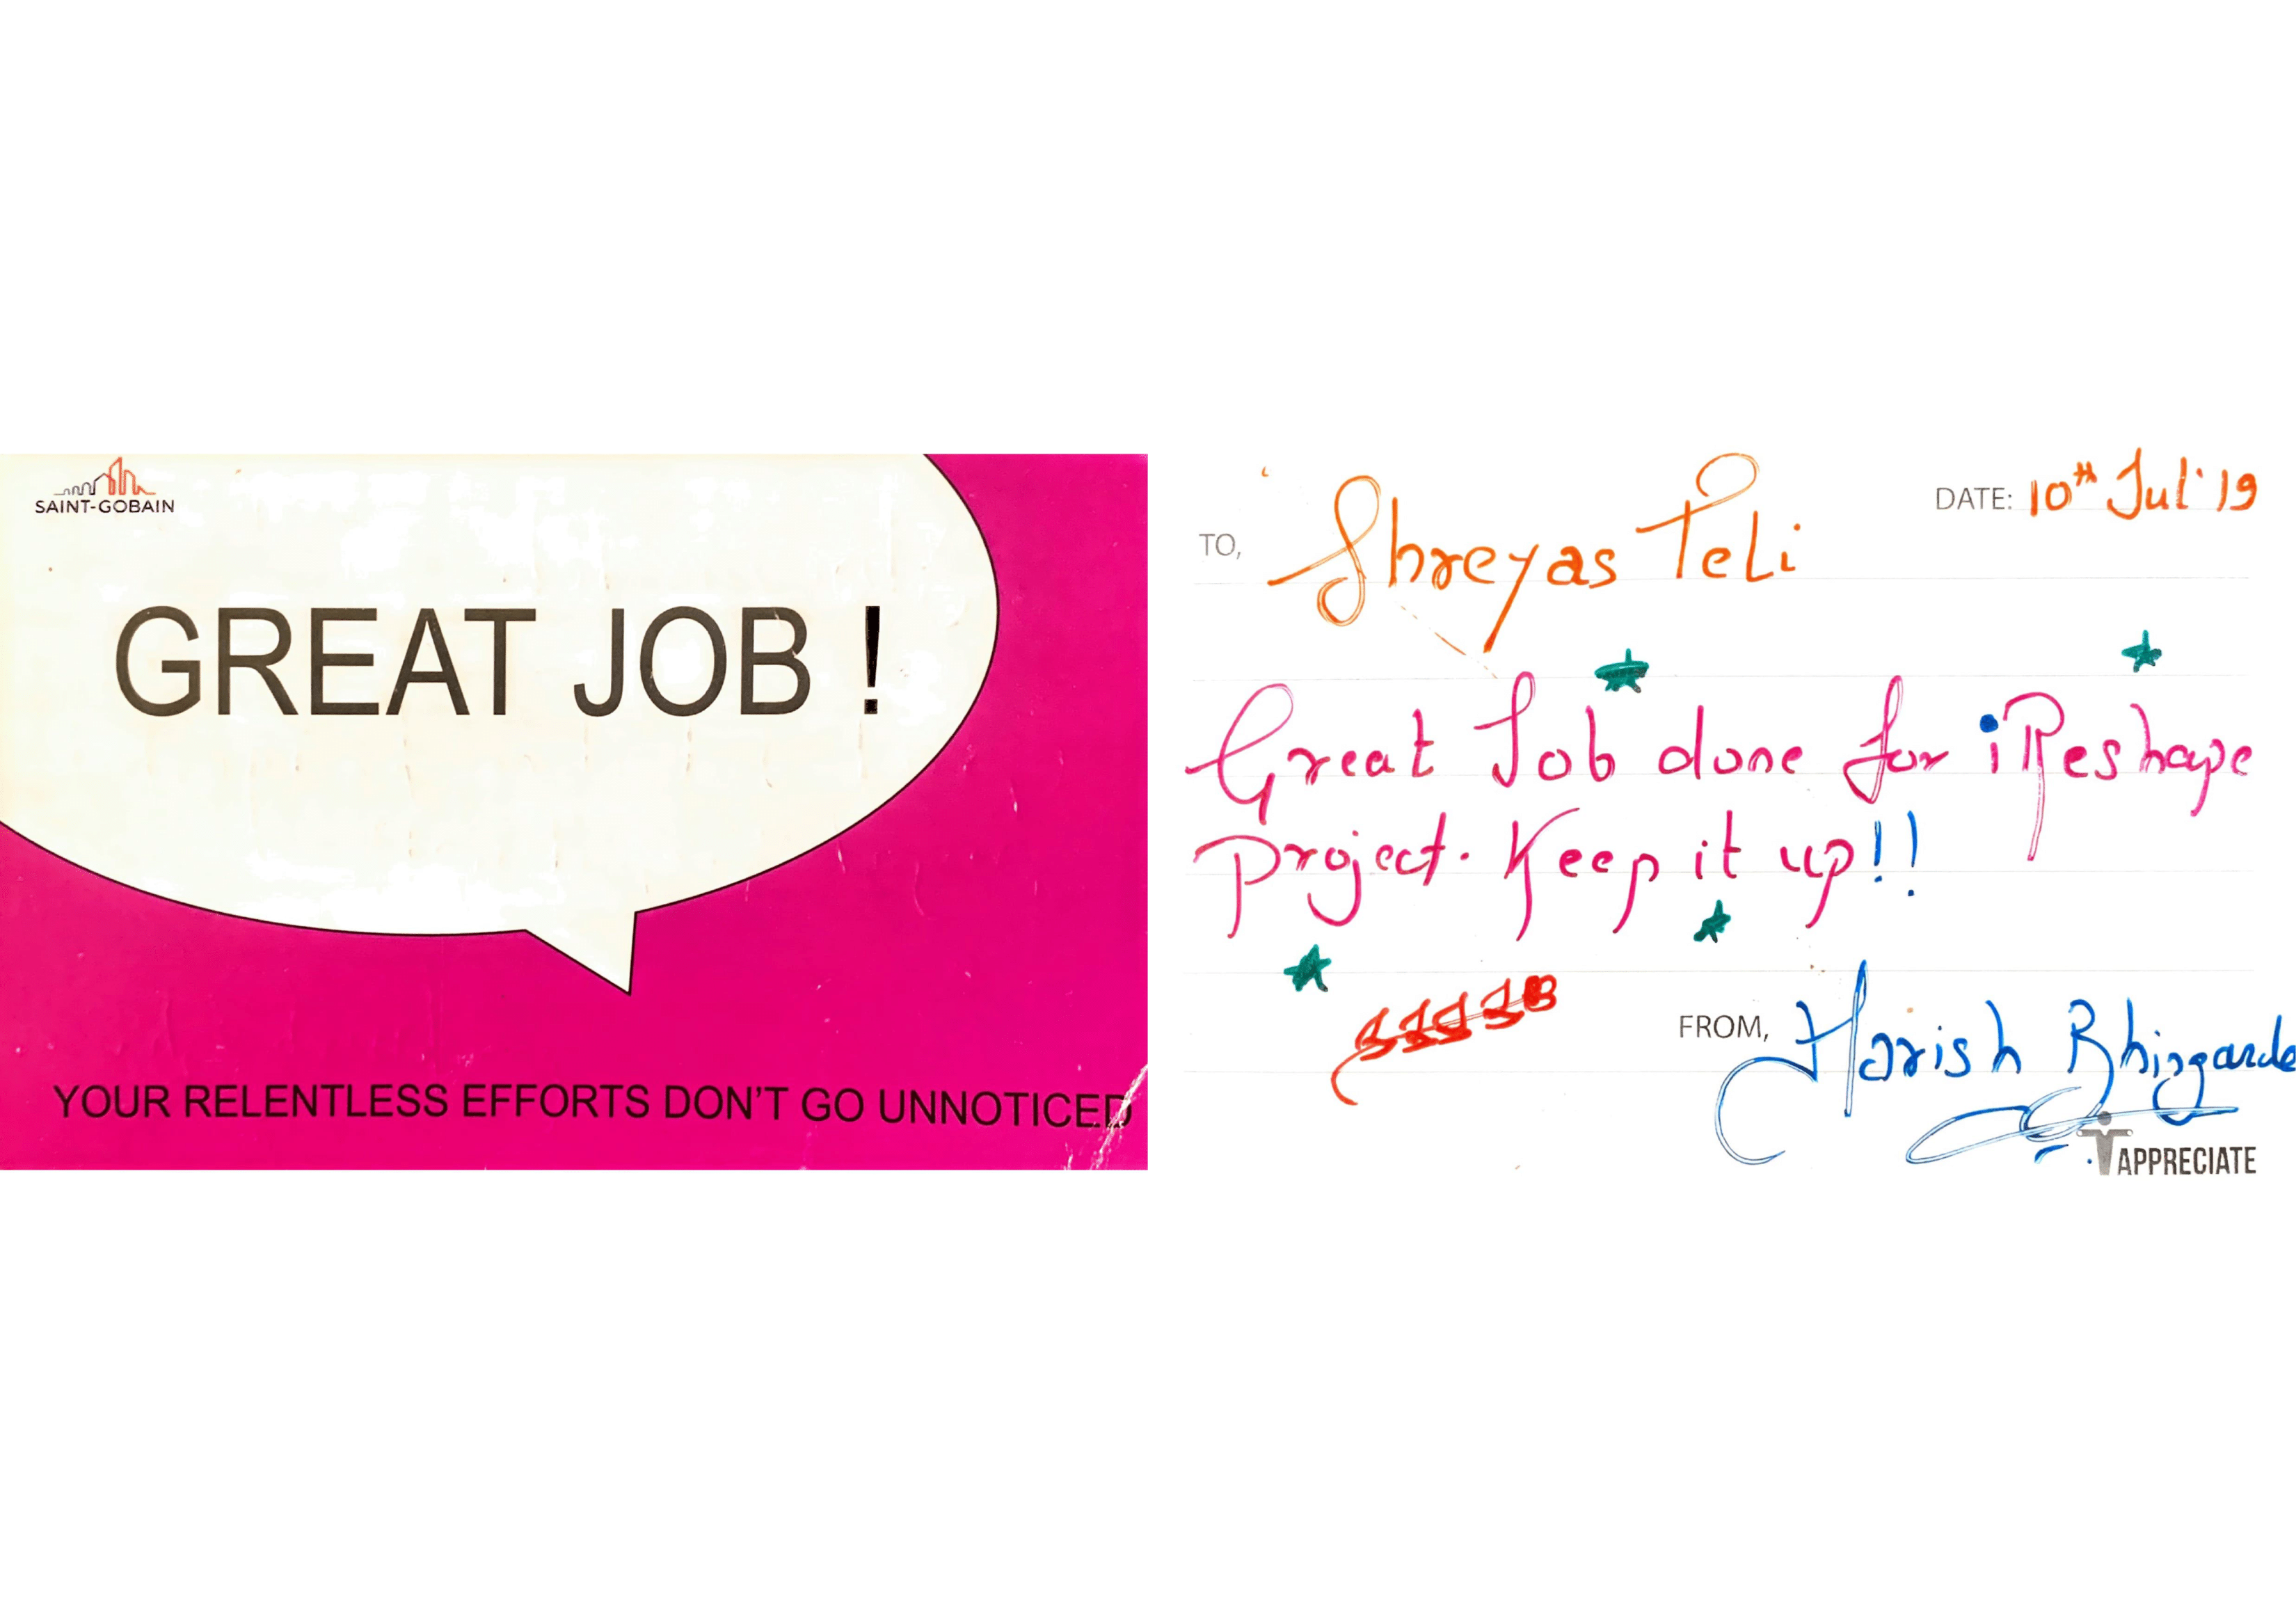 SAINT-GOBAIN
GREAT JOB !
YOUR RELENTLESS EFFORTS DON'T GO UNNOTICED
DATE: 10th Jul'19
TO, Shreyas Teli
Great Job done for iReshape
Project. Keep it up!!
FROM, Harish Bhirgarde
APPRECIATE